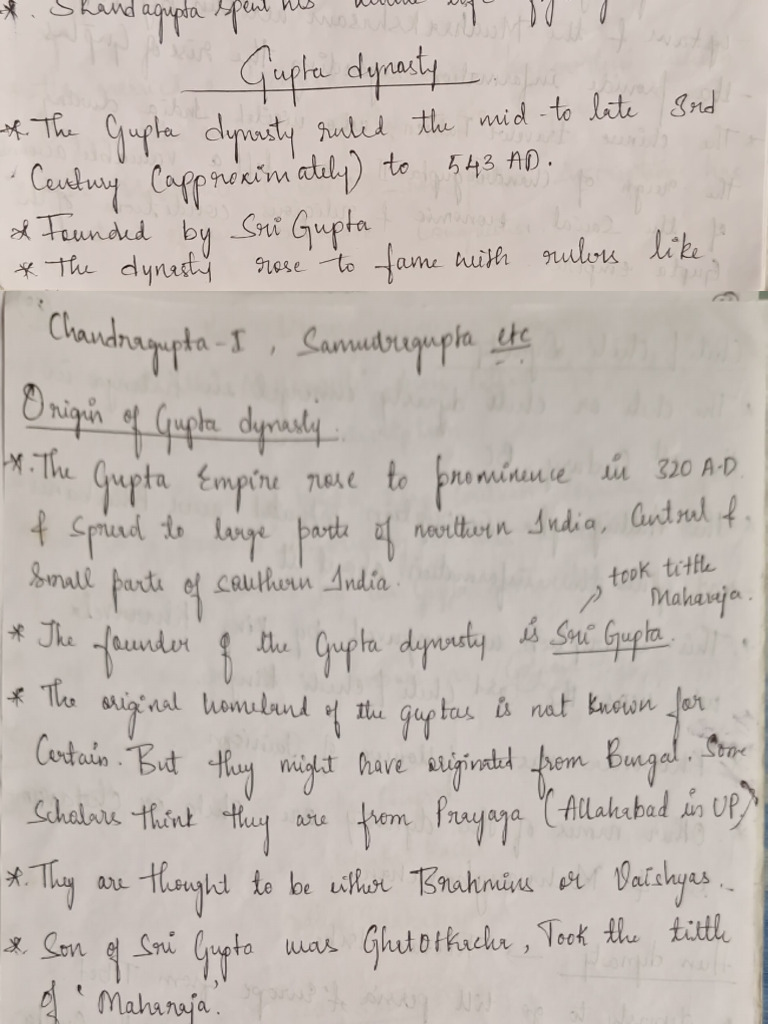 *. Skandagupta spent his
Gupta dynasty
*. The Gupta dynasty ruled the mid-to late 3rd
Century (approximately) to 543 AD.
* Founded by Sri Gupta
* The dynasty rose to fame with rulers like
Chandragupta-I, Samudragupta etc
Origin of Gupta dynasty
*. The Gupta Empire rose to prominence in 320 A.D
& Spread to large parts of northern India, Central &
Small parts of southern India.
took tittle
Maharaja.
* The founder of the Gupta dynasty is Sri Gupta.
* The original homeland of the guptas is not known for
Certain. But they might have originated from Bengal. Some
Scholars think they are from Prayaga (Allahabad in UP)
*. They are thought to be either Brahmins or Vaishyas.
* Son of Sri Gupta was Ghatotkacha, Took the tittle
of 'Maharaja'.